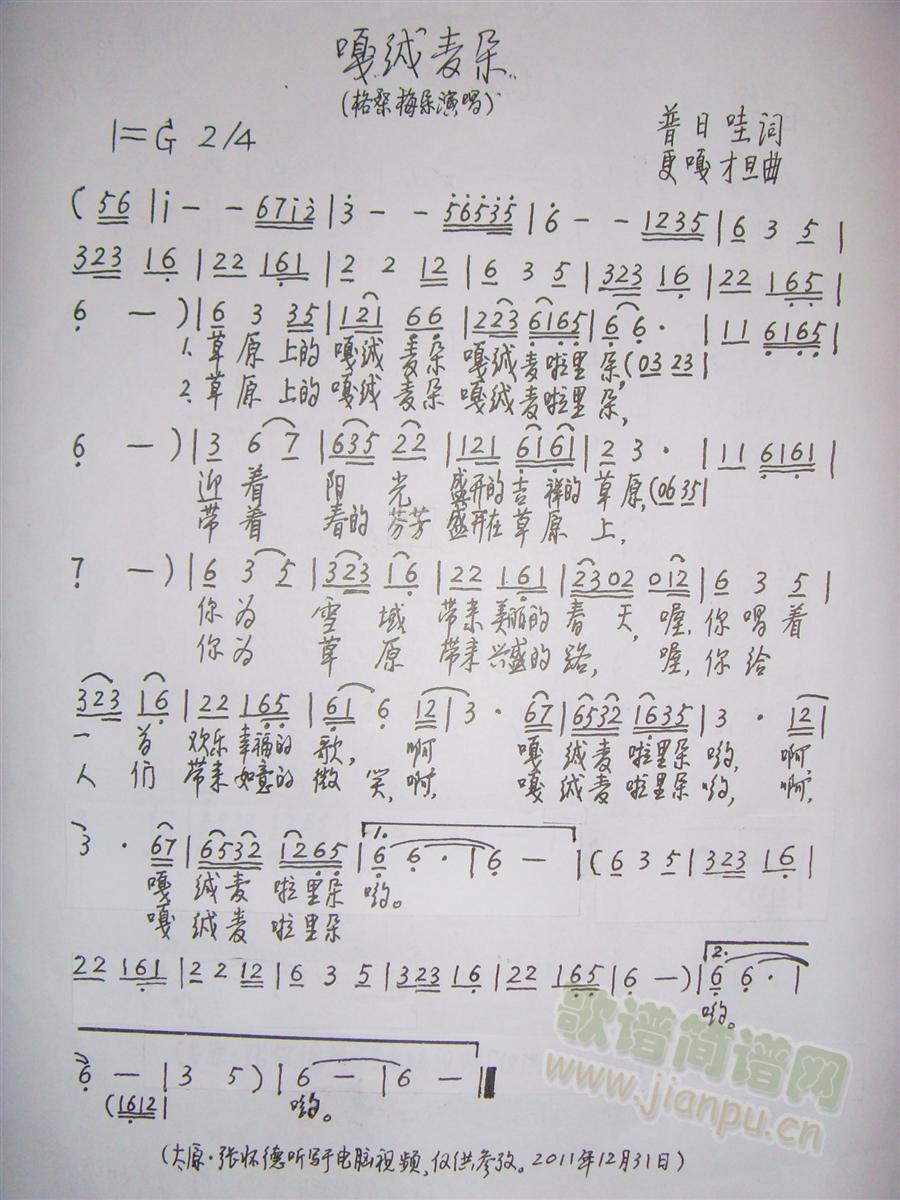 嘎绒麦朵
(格桑梅朵演唱)
1=G 2/4
普日哇词
更嘎才旦曲
(56|i - - 67i2|3 - - 56535|6 - - 1235|6 3 5|
323 16|22 161|2 2 12|6 3 5|323 16|22 165|
6 -)|6 3 35|121 66|223 6165|6 6·|11 6165|
1.草原上的嘎绒麦朵 嘎绒麦啦里朵,(03 23|
2.草原上的嘎绒麦朵 嘎绒麦啦里朵,
6 -)|3 6 7|635 22|121 6161|2 3·|11 6161|
迎着 阳光 盛开的吉祥的草原,(06 35|
带着 春的芬芳盛开在草原上,
7 -)|6 3 5|323 16|22 161|2302 012|6 3 5|
你为 雪域 带来美丽的春天,喔,你唱着
你为 草原 带来兴盛的路, 喔,你给
323 16|22 165|61 6 12|3· 67|6532 1635|3· 12|
一首 欢乐幸福的歌, 啊 嘎绒麦啦里朵哟, 啊,
人们 带来如意的微笑,啊, 嘎绒麦啦里朵哟, 啊,
3· 67|6532 1265|1.6 6·|6 -|(6 3 5|323 16|
嘎绒麦啦里朵 哟。
嘎绒麦啦里朵
22 161|2 2 12|6 3 5|323 16|22 165|6 -)|2.6 6·|
哟。
6 -|3 5)|6 -|6 -|
(1612| 哟。
歌谱简谱网
www.jianpu.cn
(太原·张怀德听写于电脑视频,仅供参考。2011年12月31日)